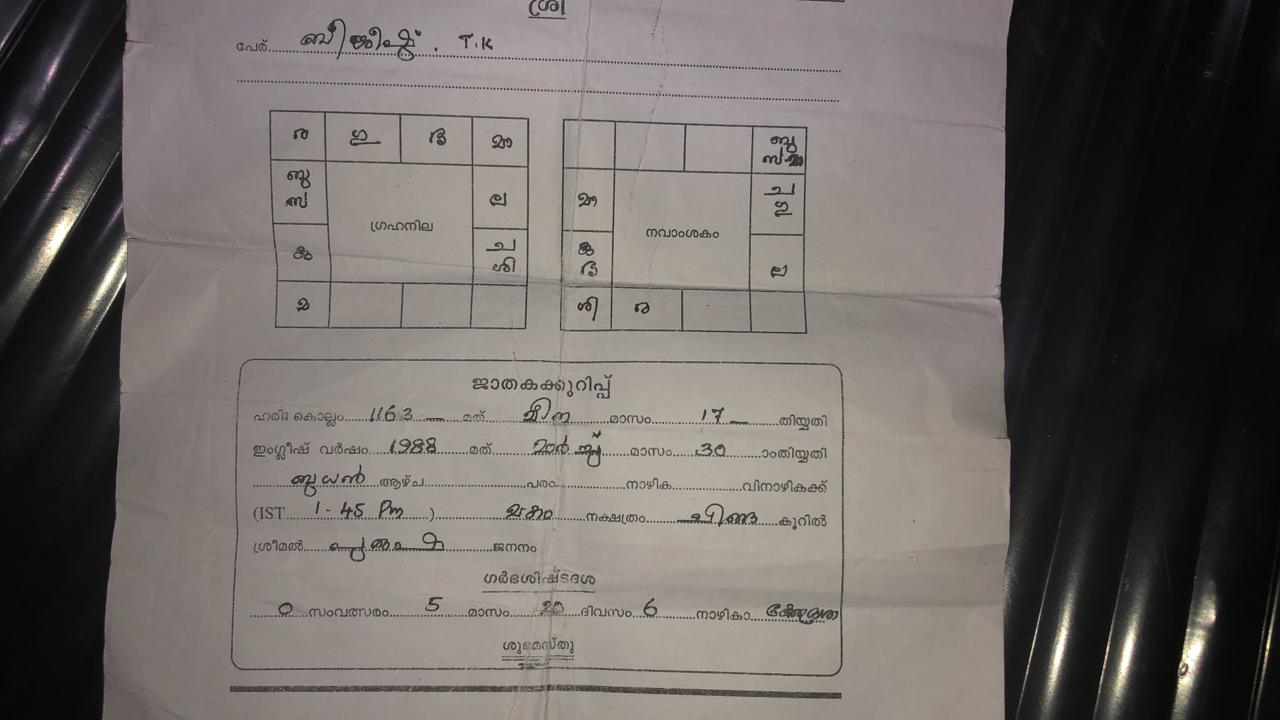 ശ്രീ
പേര് ബിജീഷ് . T.K
ര ഇ ഭ്ര മാ
ബു സ്
ല
ഗ്രഹനില
കു
ച ശി
മ
ബു സ്
മാ
ച ഇ
നവാംശകം
കു ഭ്ര
ല
ശി ര
ജാതകക്കുറിപ്പ്
ഹരിഃ കൊല്ലം 1163 മത് മീന മാസം 17 തിയ്യതി
ഇംഗ്ലീഷ് വർഷം 1988 മത് മാർച്ച് മാസം 30 ാംതിയ്യതി
ബുധൻ ആഴ്ച പരം നാഴിക വിനാഴികക്ക്
(IST 1-45 Pm ) മകം നക്ഷത്രം ചിങ്ങ കൂറിൽ
ശ്രീമൽ പുരുഷ ജനനം
ഗർഭശിഷ്ടദശ
0 സംവത്സരം 5 മാസം 20 ദിവസം 6 നാഴികാ
ശുഭമസ്തു